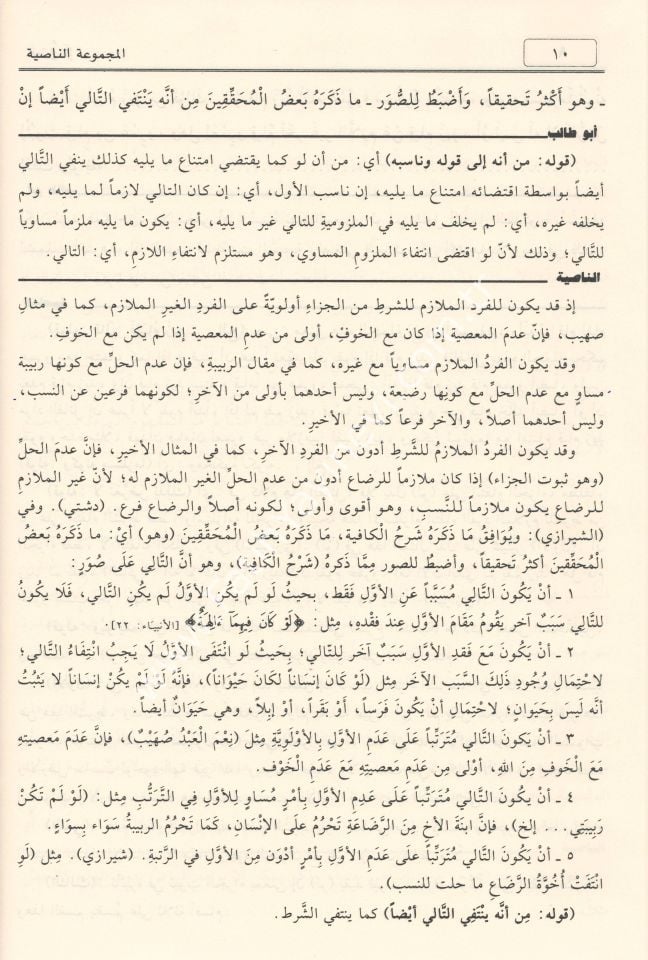 ١٠
المجموعة الناصية
ـ وهو أَكْثَرُ تَحقيقاً، وَأَضْبَطُ لِلصُّوَر ـ ما ذَكَرَهُ بَعضُ الْمُحَقِّقِينَ مِن أنَّه يَنْتَفي التَّالي أَيْضاً إنْ
أبو طالب
(قوله: من أنه إلى قوله وناسبه) أي: من أن لو كما يقتضي امتناع ما يليه كذلك ينفي التَّالي
أيضاً بواسطة اقتضائه امتناع ما يليه، إن ناسب الأول، أي: إن كان التالي لازماً لما يليه، ولم
يخلفه غيره، أي: لم يخلف ما يليه في الملزومية للتالي غير ما يليه، أي: يكون ما يليه ملزماً مساوياً
للتَّالي؛ وذلك لأنّ لو اقتضى انتفاءَ الملزوم المساوي، وهو مستلزم لانتفاءِ اللازم، أي: التالي.
الناصية
إذ قد يكون للفرد الملازم للشرطِ من الجزاءِ أولويّةٌ على الفردِ الغيرِ الملازم، كما في مثالِ
صهيب، فإنّ عدمَ المعصية إذا كان مع الخوفِ، أولى من عدم المعصية إذا لم يكن مع الخوفِ.
وقد يكون الفردُ الملازم مساوياً مع غيره، كما في مقال الربيبةِ، فإن عدم الحلّ مع كونها ربيبة
مساوٍ مع عدم الحل مع كونِها رضيعة، وليس أحدهما بأولى من الآخرِ؛ لكونهما فرعين عن النسب،
وليس أحدهما أصلاً، والآخر فرعاً كما في الأخيرِ.
وقد يكون الفردُ الملازمُ للشَّرطِ أدون من الفردِ الآخرِ، كما في المثال الأخيرِ، فإنَّ عدمَ الحلِّ
(وهو ثبوت الجزاء) إذا كان ملازماً للرضاع أدون من عدمِ الحلِّ الغير الملازم له؛ لأنّ غير الملازمِ
للرضاعِ يكون ملازماً للنَّسبِ، وهو أقوى وأولى؛ لكونه أصلاً والرضاع فرع. (دشتي). وفي
(الشيرازي): ويُوَافِقُ مَا ذَكَرَهُ شَرحُ الكافية، مَا ذَكَرَهُ بَعَضُ الْمُحَقِّقِينَ (وهو) أيْ: ما ذكَرَهُ بَعضُ
الْمُحَقِّقينَ أكثرُ تَحقيقاً، وأضبطُ للصور مِمَّا ذكرهُ (شَرْحُ الْكَافِيةِ)، وهو أنَّ التَّالي عَلَى صُوَرٍ:
١ ـ أنْ يَكُونَ التَّالي مُسَبَّباً عَنِ الأوَّلِ فَقَط، بحيثُ لَو لَم يكُنِ الأوَّلُ لَم يكُنِ التَّالي، فَلا يكُونُ
للتَّالي سَبَبٌ آخر يَقُومُ مَقَامَ الأوَّلِ عِندَ فقْدِهِ، مِثل: ﴿لَوْ كَانَ فِيهِمَآ ءَالِهَةٌ﴾ [الأنبيَاء: ٢٢].
٢ ـ أنْ يَكُونَ مَعَ فَقدِ الأوَّلِ سَبَبٌ آخر لِلتَّالي؛ بِحَيثُ لَو انْتَفَى الأوَّلُ لَا يَجِبُ انْتِفَاءُ التَّالي؛
لاحتِمَالِ وُجُودِ ذَلِكَ السَّبَبِ الآخرِ مِثلِ (لَوْ كَانَ إنسَاناً لَكانَ حَيْوَاناً)، فإنَّهُ لَوْ لمْ يكُنْ إنسَاناً لا يَثبُتُ
أنَّه لَيسَ بِحَيوَانٍ؛ لاحتِمَالِ أنْ يَكُونَ فَرَساً، أوْ بَقَراً، أوْ إبِلاً، وهي حَيَوَانٌ أيضاً.
٣ ـ أنْ يَكونَ التَّالي مُتَرَتِّباً عَلَى عَدَمِ الأوَّلِ بِالأوْلَوِيَّةِ مِثلَ (نِعْمَ الْعَبْدُ صُهَيْبٌ)، فإنَّ عَدَمَ مَعصيتِهِ
مَعَ الْخَوفِ مِنَ اللهِ، أوْلَى مِن عَدَمِ مَعصيتِهِ مَعَ عَدَمِ الْخَوْفِ.
٤ ـ أنْ يَكُونَ التَّالي مُتَرَتِّباً عَلَى عَدِمِ الأوَّلِ بِأمْرٍ مُسَاوٍ لِلأوَّلِ فِي التَّرَتُّبِ مِثل: (لَوْ لَمْ تَكُنْ
رَبِيبَتِي... إلخ)، فإنَّ ابنَةَ الأخِ مِنَ الرَّضَاعَةِ تَحْرُمُ علَى الإنْسَانِ، كَمَا تَحْرُمُ الربيبةُ سَوَاء بِسَواءٍ.
٥ ـ أنْ يَكُونَ التَّالي مُتَرَتِّباً عَلَى عَدَمِ الأوَّلِ بِأمْرٍ أدْوَن مِنَ الأوَّلِ في الرَّتبةِ. (شيرازي). مِثل (لَوِ
انْتَفَتْ أُخُوَّةُ الرَّضَاعِ ما حلت للنسب).
(قوله: مِن أنَّه يَنْتَفِي التَّالي أيْضاً) كما ينتفي الشَّرط.